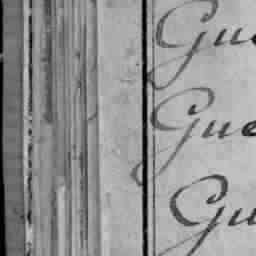 Gue
Gue
Gu